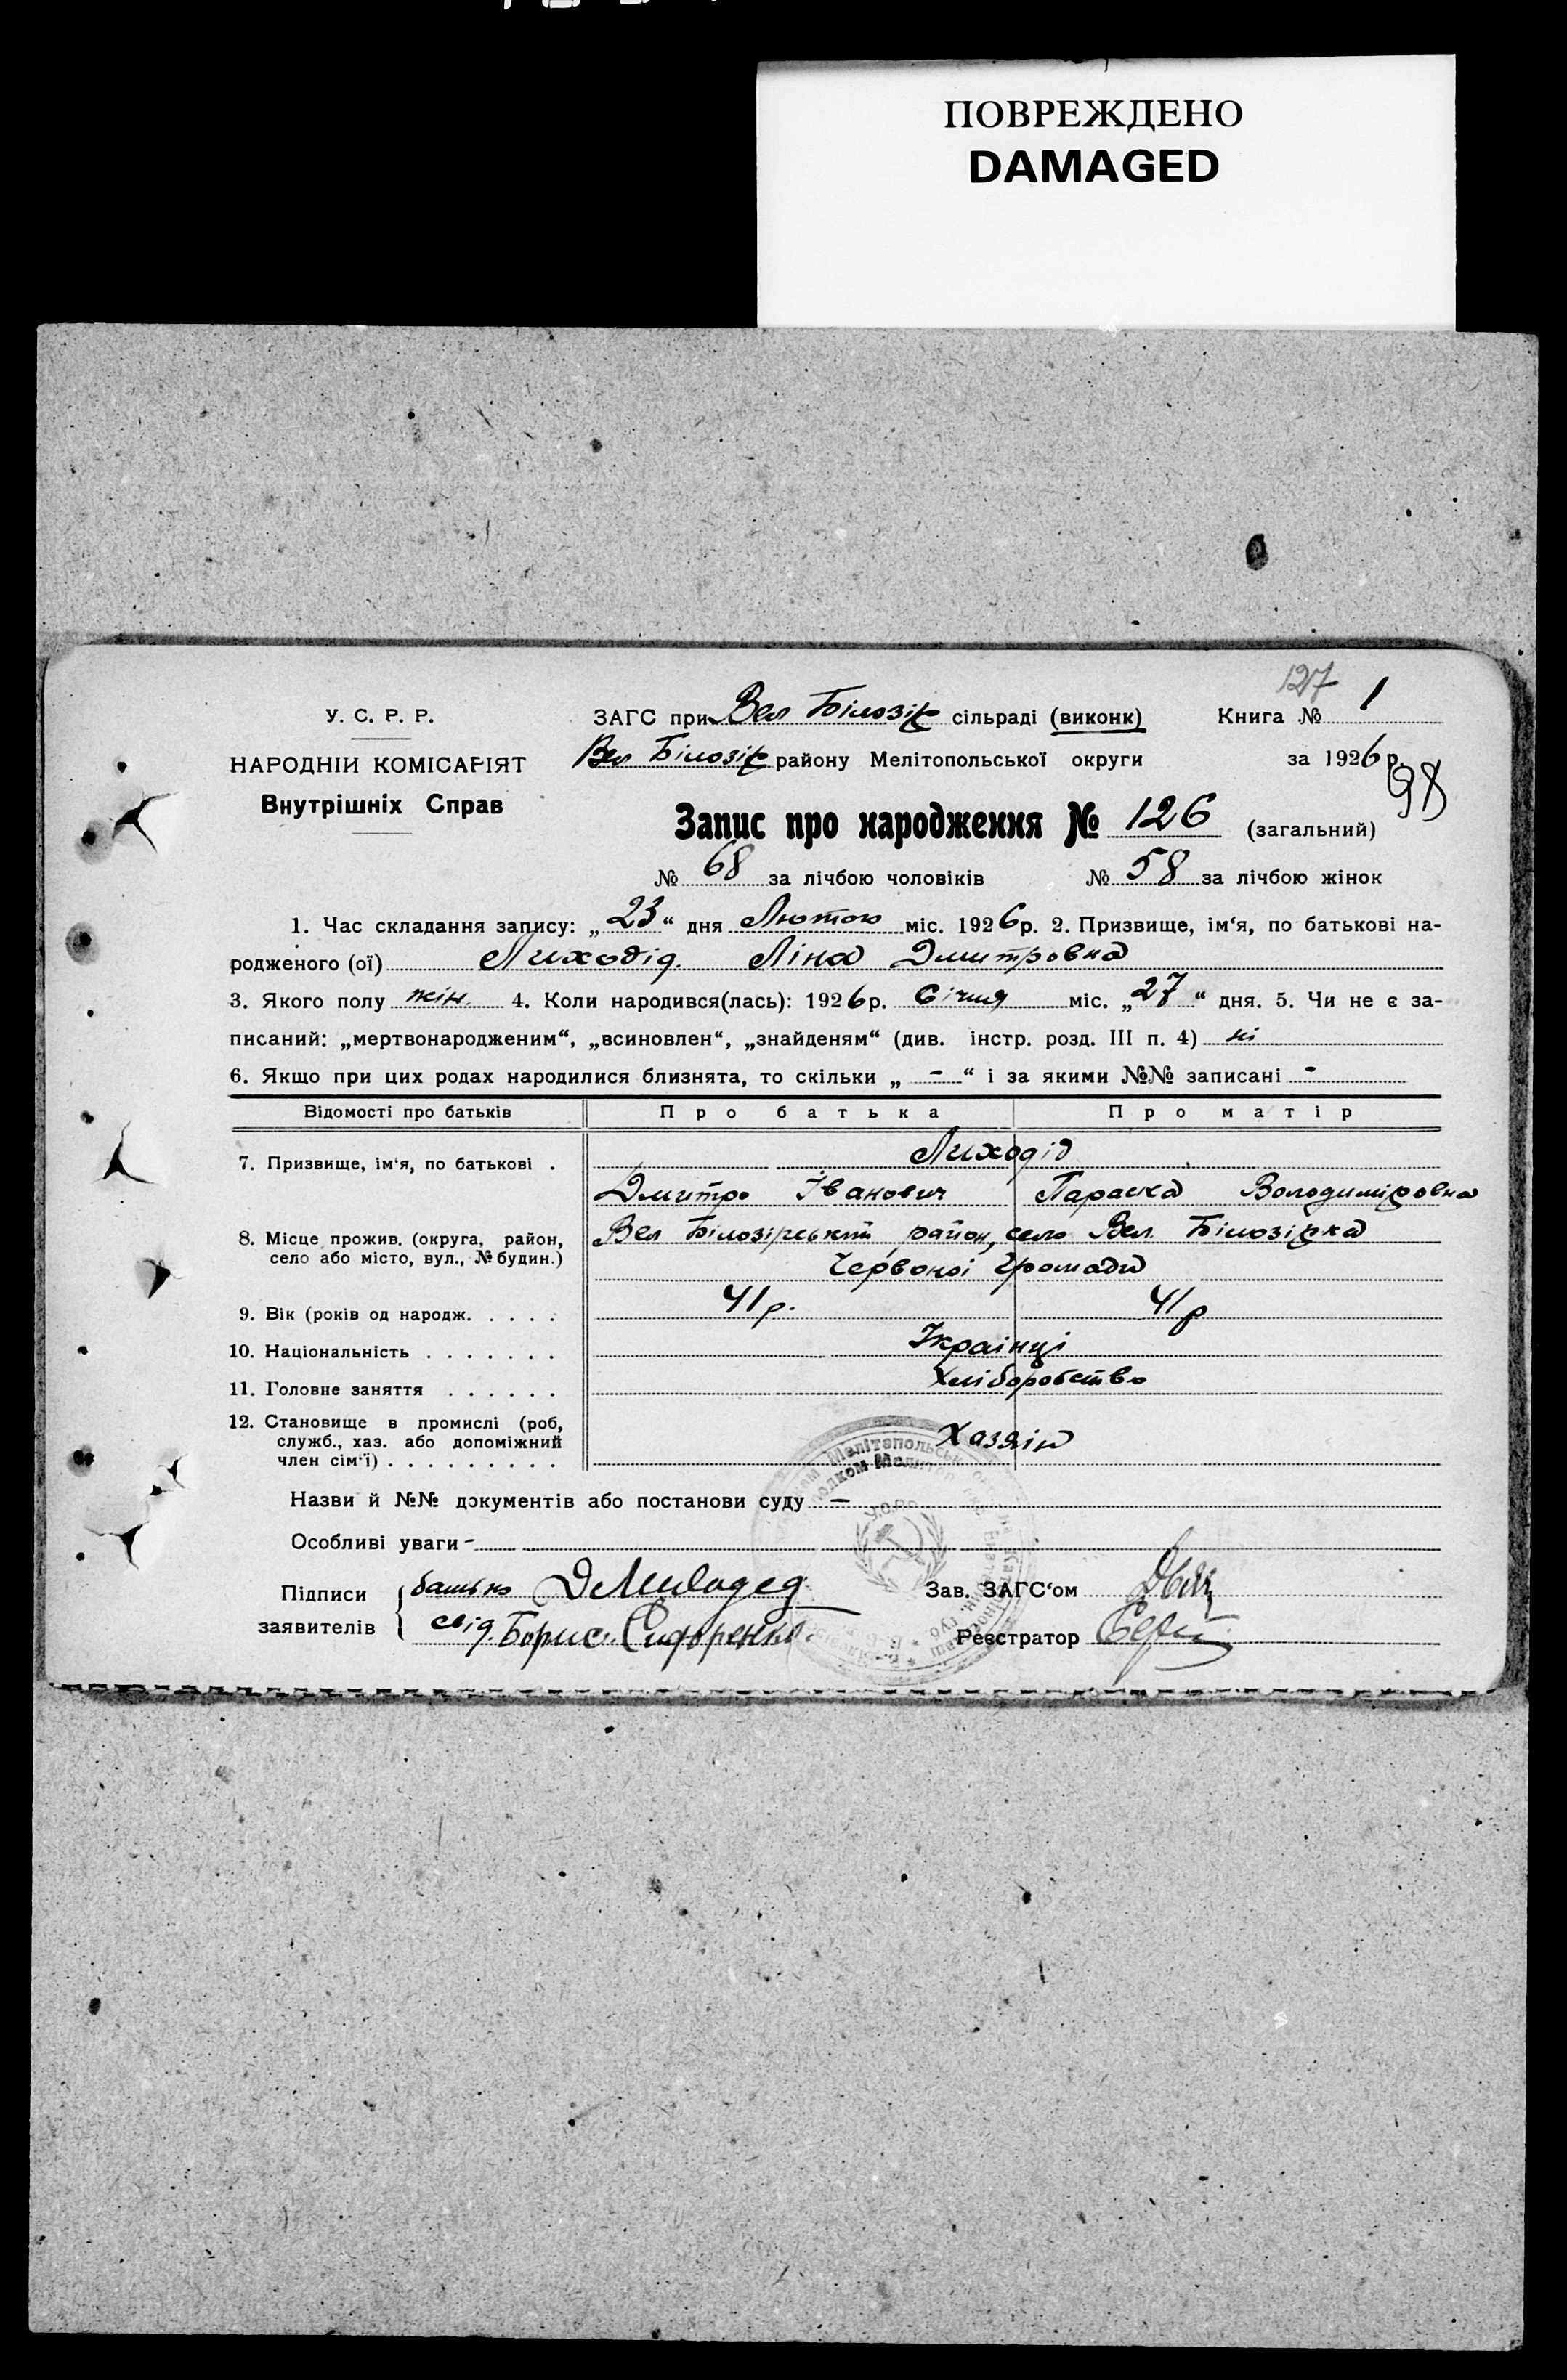 ПОВРЕЖДЕНО
DAMAGED
127
У. С. Р. Р.
ЗАГС при Вел Білозір сільраді (виконк)
Книга № 1
НАРОДНІЙ КОМІСАРІЯТ
Вел Білозір району Мелітопольської округи
за 1926 р.
98
Внутрішніх Справ
Запис про народження № 126 (загальний)
№ 68 за лічбою чоловіків № 58 за лічбою жінок
1. Час складання запису: „23“ дня Лютого міс. 1926 р. 2. Призвище, ім‘я, по батькові на-
родженого (ої) Лиходід Ліна Дмитровна
3. Якого полу жін. 4. Коли народився(лась): 1926 р. Січня міс. „27“ дня. 5. Чи не є за-
писаний: „мертвонародженим“, „всиновлен“, „знайденям“ (див. інстр. розд. III п. 4) ні
6. Якщо при цих родах народилися близнята, то скільки „ - “ і за якими №№ записані -
Відомості про батьків Про батька Про матір
7. Призвище, ім‘я, по батькові . Лиходід
Дмитро Іванович Параска Володимировна
8. Місце прожив. (округа, район, Вел Білозірський район, село Вел. Білозірка
село або місто, вул., № будин.) Червоної Громади
9. Вік (років од народж. . . . . 41 р. 41 р
10. Національність . . . . . . . Українці
11. Головне заняття . . . . . . Хліборобство
12. Становище в промислі (роб,
служб., хаз. або допоміжний Хазяін
член сім‘ї) . . . . . . . . .
Назви й №№ документів або постанови суду —
Особливі уваги -
Підписи батько
Зав. ЗАГС‘ом
заявителів свід. Борис Сидоренко.
Реєстратор
У.С.Р.Р.